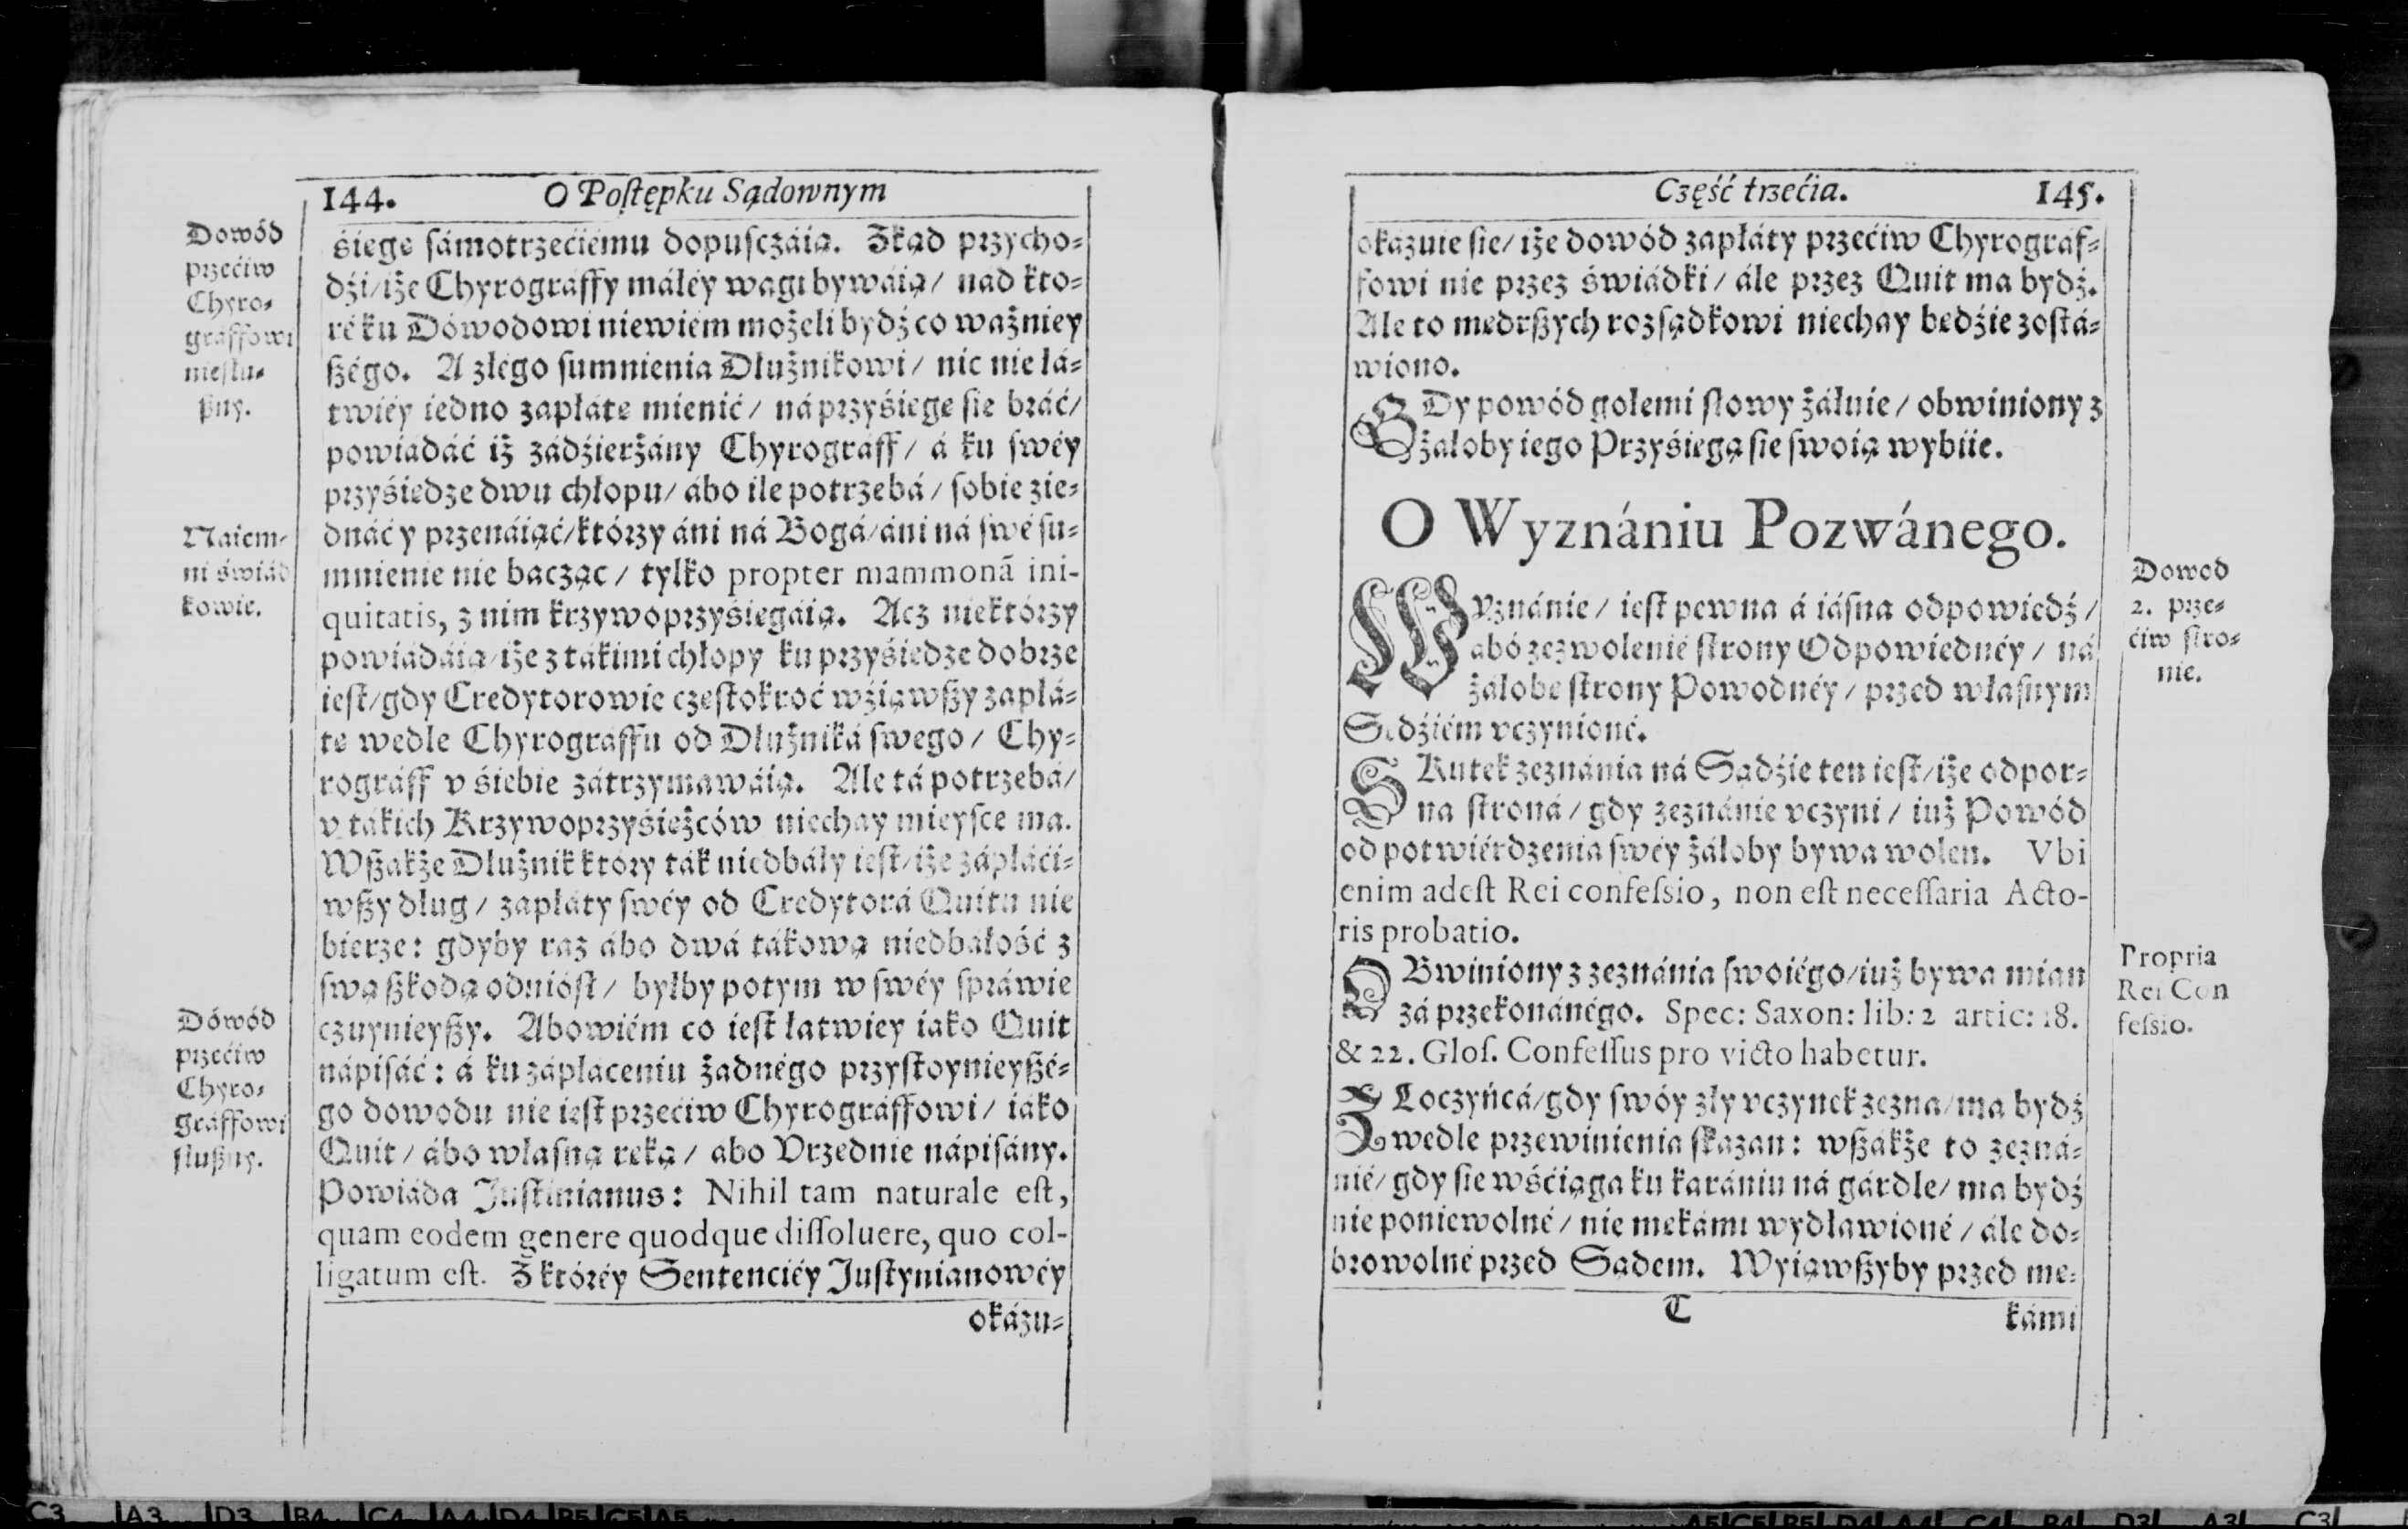 144. O Poſtępku Sądownym
Dowód
przećiw
Chyro-
gráffowi
nieſłu-
ßny.
śiege ſámotrzećiému dopuſczáią. Zkąd przycho-
dźi/iże Chyrográffy máłéy wagi bywáią/ nád kto-
ré ku Dówodowi niewiém możeli bydź co ważniey
ßégo. A złégo ſumnienia Dłużnikowi/ nic nie łá-
twiéy iedno zapłáte mienić/ ná przyśiege ſie bráć/
powiádáć iż zádźierżány Chyrográff/ á ku ſwéy
przyśiedze dwu chłopu/ ábo ile potrzebá/ ſobie zie-
Naiem-
ni świad
kowie.
dnáć y przenáiąć/którzy áni ná Bogá/áni ná ſwé ſu-
mnienie nie bacząc/ tylko propter mammonã ini-
quitatis, z nim krzywoprzyśiegáią. Acz niektórzy
powiádáią/iże z tákimi chłopy ku przyśiedze dobrze
ieſt/gdy Credytorowie czeſtokroć wźiąwßy zapłá-
te wedle Chyrográffu od Dłużniká ſwego/ Chy-
rográff v śiebie zátrzymawáią. Ale tá potrzebá/
v tákich Krzywoprzyśieżców niechay mieyſce ma.
Wßákże Dłużnik który ták niedbáły ieſt/iże zápłáći-
wßy dług/ zapłáty ſwéy od Credytorá Quitu nie
bierze: gdyby raz ábo dwá tákową niedbałość z
ſwą ßkodą odnióſł/ byłby potym w ſwéy ſpráwie
Dówód
przećiw
Chyro-
gráffowi
ſłußny.
czuynieyßy. Abowiém co ieſt łatwiey iáko Quit
nápiſáć: á ku zápłáceniu żadnégo przyſtoynieyßé-
go dowodu nie ieſt przećiw Chyrográffowi/ iáko
Quit/ ábo własną reką/ abo Vrzednie nápiſány.
Powiáda Juſtinianus: Nihil tam naturale eſt,
quam eodem genere quodque diſſoluere, quo col-
ligatum eſt. Z któréy Sentenciéy Juſtynianowéy
okázu-
Część trzećia. 145.
okázuie ſie/ iże dowód zapłáty przećiw Chyrográf-
fowi nie przez świádki/ ále przez Quit ma bydź.
Ale to medrßych rozſądkowi niechay bedźie zoſtá-
wiono.
GDy powód gołemi ſłowy żáłuie/ obwiniony z
żałoby iego Przyśiegą ſie ſwoią wybiie.
O Wyznániu Pozwánego.
Dowod
2. prze-
ćiw ſtro-
nie.
WYznánie/ ieſt pewna á iáſna odpowiedź/
abó zezwolenié ſtrony Odpowiednéy/ ná
żáłobe ſtrony Powodnéy/ przed własnym
Sedźiém vczynioné.
SKutek zeznánia ná Sądźie ten ieſt/iże odpor-
na ſtroná/ gdy zeznánie vczyni/ iuż Powód
od potwiérdzenia ſwéy żáłoby bywa wolen. Vbi
enim adeſt Rei confeſsio, non eſt neceſſaria Acto-
ris probatio.
Propria
Rei Con
feſsio.
OBwiniony z zeznánia ſwoiégo/iuż bywa mian
zá przekonánégo. Spec: Saxon: lib: 2 artic: 18.
& 22. Gloſ. Confeſſus pro victo habetur.
ZŁoczyńcá/gdy ſwóy zły vczynek zezna/ma bydź
wedle przewinienia ſkazan: wßákże to zezná-
nié/ gdy ſie wśćiąga ku karániu ná gárdle/ ma bydź
nie poniewolné/ nie mekámi wydławioné/ ále do-
browolné przed Sądem. Wyiąwßyby przed me-
T kámi